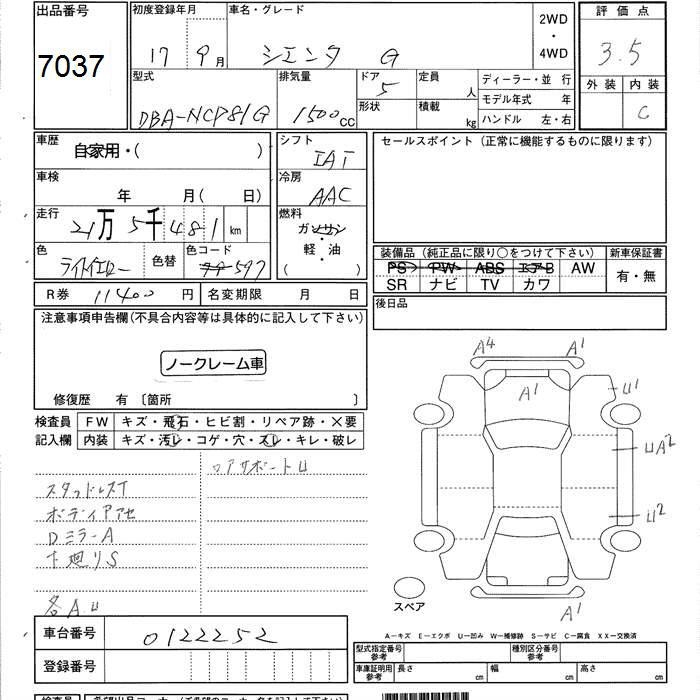 出品番号
7037
初度登録年月
17 9月
車名・グレード
シエンタ G
2WD
・
4WD
評価点
3.5
外装 内装
C
型式
DBA-NCP81G
排気量
1500cc
ドア
5
形状
定員
人
積載
kg
ディーラー・並 行
モデル年式 年
ハンドル 左・右
車歴
自家用・( )
車検
年 月( 日)
走行
21万5千481km
色
ライトイエロー
色替
色コード
カラー597
シフト
IAT
冷房
AAC
燃料
ガソリン
軽・油
( )
セールスポイント(正常に機能するものに限ります)
装備品(純正品に限り○をつけて下さい)
PS PW ABS エアB AW
SR ナビ TV カワ
新車保証書
有・無
R券 11400円
名変期限 月 日
後日品
注意事項申告欄(不具合内容等は具体的に記入して下さい)
ノークレーム車
修復歴 有 〔箇所 〕
検査員
記入欄
FW キズ・飛石・ヒビ割・リペア跡・×要
内装 キズ・汚レ・コゲ・穴・スレ・キレ・破レ
スタッドレスT
ボディイアアセ
DミラーA
下廻りS
各A.U
ロアサポートU
A4 A1
A1
U1
UA2
U2
A1
スペア
車台番号 0122252
登録番号
A-キズ E-エクボ U-凹み W-補修跡 S-サビ C-腐食 XX-交換済
型式指定番号
参考
種別区分番号
参考
車庫証明用
参考
長さ cm 幅 cm 高さ cm